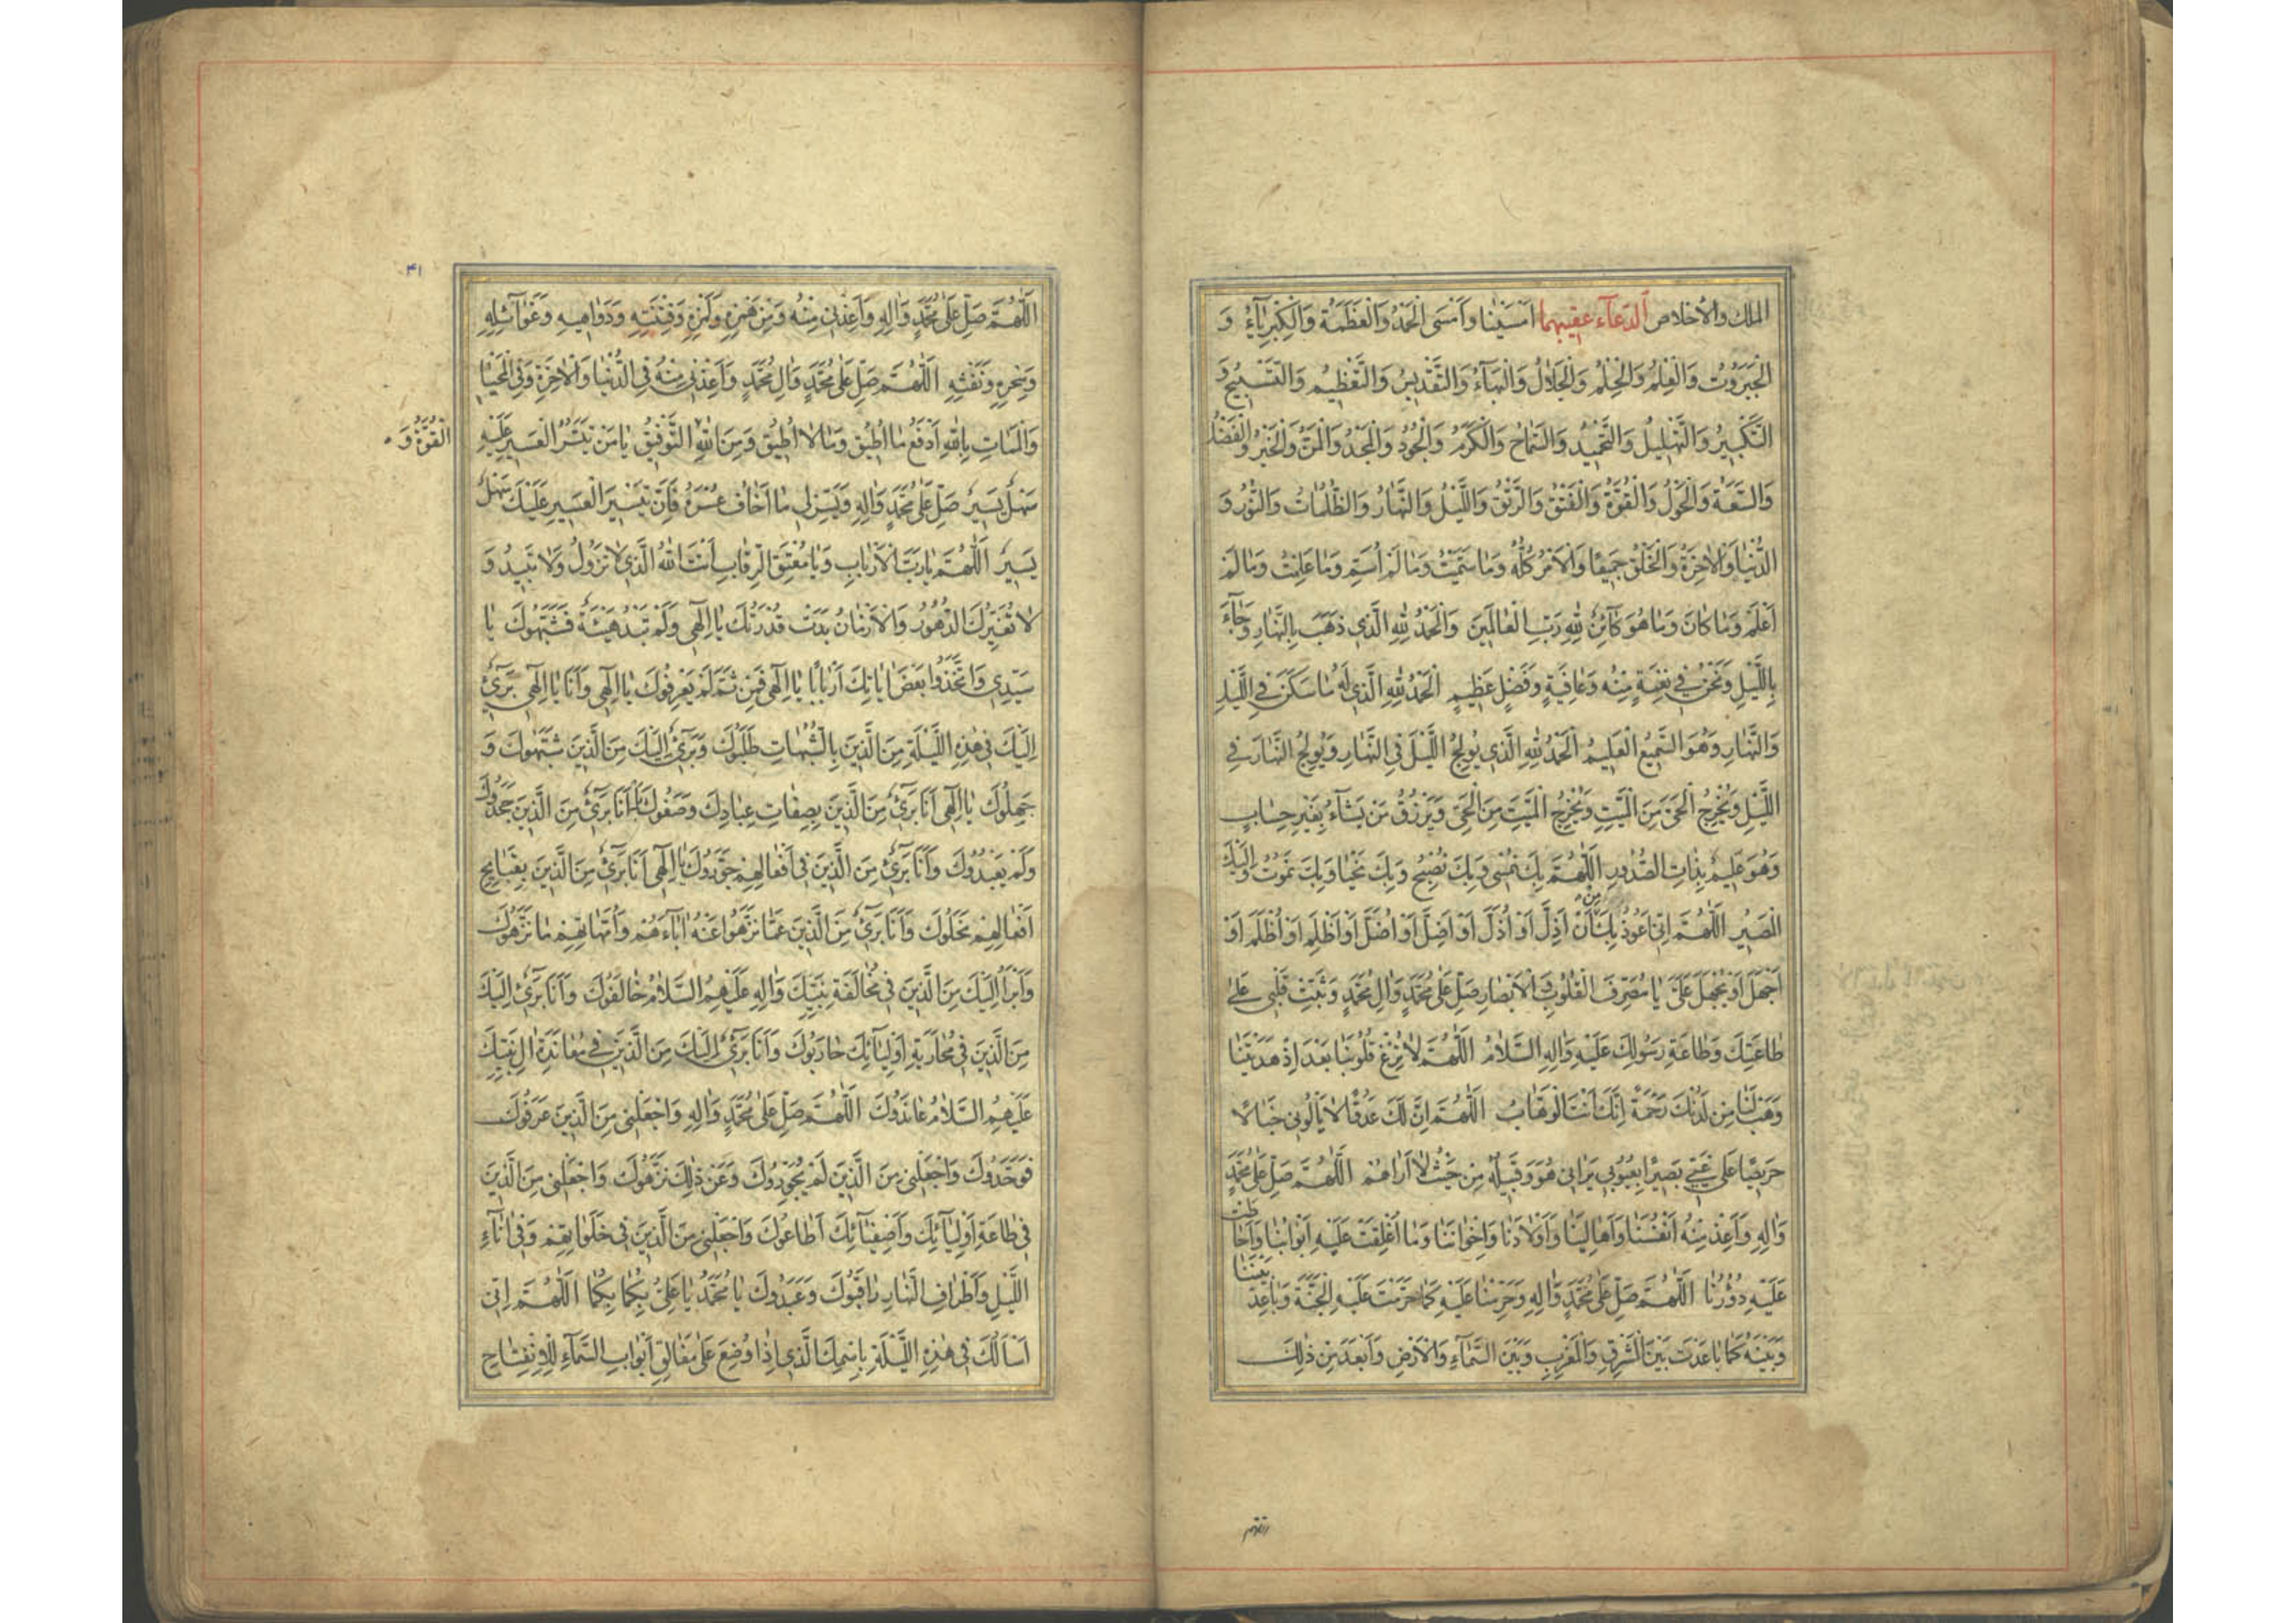 الملك والاخلاص الدعاء عقيبهما اَمْسَيْنا وَاَمْسَى الْحَمْدُ وَالْعَظَمَةُ وَالْكِبْرِيآءُ وَ
الْجَبَرُوتُ وَالْعِلْمُ وَالْحِلْمُ وَالْجَلالُ وَالْبَهآءُ وَالتَّقْديسُ وَالتَّعْظيمُ وَالتَّسْبيحُ وَ
التَّكْبيرُ وَالتَّهْليلُ وَالتَّحْميدُ وَالسَّماحُ وَالْكَرَمُ وَالْجُودُ وَالْمَجْدُ وَالْمَنُّ وَالْخَيْرُ وَالْفَضْلُ
وَالسَّعَةُ وَالْحَوْلُ وَالْقُوَّةُ وَالْفَتْقُ وَالرَّتْقُ وَاللَّيْلُ وَالنَّهارُ وَالظُّلُماتُ وَالنُّورُ وَ
الدُّنْيا وَالْاخِرَةُ وَالْخَلْقُ جَميعًا وَالْاَمْرُ كُلُّهُ وَما سَمَّيْتُ وَما لَمْ اُسَمِّ وَما عَلِمْتُ وَما لَمْ
اَعْلَمْ وَما كانَ وَما هُوَ كآئِنٌ لِلّهِ رَبِّ الْعالَمينَ وَالْحَمْدُ لِلّهِ الَّذي ذَهَبَ بِالنَّهارِ وَجآءَ
بِاللَّيْلِ وَنَحْنُ في نِعْمَةٍ مِنْهُ وَعافِيَةٍ وَفَضْلٍ عَظيمٍ الْحَمْدُ لِلّهِ الَّذي لَهُ ما سَكَنَ فِي اللَّيْلِ
وَالنَّهارِ وَهُوَ السَّميعُ الْعَليمُ الْحَمْدُ لِلّهِ الَّذي يُولِجُ اللَّيْلَ فِي النَّهارِ وَيُولِجُ النَّهارَ فِي
اللَّيْلِ وَيُخْرِجُ الْحَيَّ مِنَ الْمَيِّتِ وَيُخْرِجُ الْمَيِّتَ مِنَ الْحَيِّ وَيَرْزُقُ مَنْ يَشآءُ بِغَيْرِ حِسابٍ
وَهُوَ عَليمٌ بِذاتِ الصُّدُورِ اَللّهُمَّ بِكَ نُمْسي وَبِكَ نُصْبِحُ وَبِكَ نَحْيا وَبِكَ نَمُوتُ وَاِلَيْكَ
الْمَصيرُ اَللّهُمَّ اِنّي اَعُوذُ بِكَ مِنْ اَنْ اَذِلَّ اَوْ اُذَلَّ اَوْ اَضِلَّ اَوْ اُضَلَّ اَوْ اَظْلِمَ اَوْ اُظْلَمَ اَوْ
اَجْهَلَ اَوْ يُجْهَلَ عَلَيَّ يا مُصَرِّفَ الْقُلُوبِ وَالْاَبْصارِ صَلِّ عَلى مُحَمَّدٍ وَالِ مُحَمَّدٍ وَثَبِّتْ قَلْبي عَلى
طاعَتِكَ وَطاعَةِ رَسُولِكَ عَلَيْهِ وَالِهِ السَّلامُ اَللّهُمَّ لا تُزِغْ قُلُوبَنا بَعْدَ اِذْ هَدَيْتَنا
وَهَبْ لَنا مِنْ لَدُنْكَ رَحْمَةً اِنَّكَ اَنْتَ الْوَهّابُ اَللّهُمَّ اِنَّ لَكَ عَدُوًّا لا يَاْلُوني خَبالًا
حَريصًا عَلى غَيّي بَصيرًا بِعُيُوبي يَراني هُوَ وَقَبيلُهُ مِنْ حَيْثُ لا اَراهُمْ اَللّهُمَّ صَلِّ عَلى مُحَمَّدٍ
وَالِهِ وَاَعِذْ مِنْهُ اَنْفُسَنا وَاَهالينا وَاَوْلادَنا وَاِخْوانَنا وَما اُغْلِقَتْ عَلَيْهِ اَبْوابُنا وَاَحاطَتْ
عَلَيْهِ دُورُنا اَللّهُمَّ صَلِّ عَلى مُحَمَّدٍ وَالِهِ وَحَرِّمْنا عَلَيْهِ كَما حَرَّمْتَ عَلَيْهِ الْجَنَّةَ وَباعِدْ بَيْنَنا
وَبَيْنَهُ كَما باعَدْتَ بَيْنَ الْمَشْرِقِ وَالْمَغْرِبِ وَبَيْنَ السَّمآءِ وَالْاَرْضِ وَاَبْعَدَ مِنْ ذلِكَ
اللهم
٤١
اَللّهُمَّ صَلِّ عَلى مُحَمَّدٍ وَالِهِ وَاَعِذْني مِنْهُ وَمِنْ هَمْزِهِ وَلَمْزِهِ وَفِتْنَتِهِ وَدَواهيهِ وَغَوآئِلِهِ
وَسِحْرِهِ وَنَفْثِهِ اَللّهُمَّ صَلِّ عَلى مُحَمَّدٍ وَالِ مُحَمَّدٍ وَاَعِذْني مِنْهُ فِي الدُّنْيا وَالْاخِرَةِ وَفِي الْمَحْيا
وَالْمَماتِ بِاللّهِ اَدْفَعُ ما اُطيقُ وَما لا اُطيقُ وَمِنَ اللّهِ التَّوْفيقُ يا مَنْ تَيْسيرُ الْعَسيرِ عَلَيْهِ
الْقُوَّةُ وَ
سَهْلٌ يَسيرٌ صَلِّ عَلى مُحَمَّدٍ وَالِهِ وَيَسِّرْ لي ما اَخافُ عُسْرَهُ فَاِنَّ تَيْسيرَ الْعَسيرِ عَلَيْكَ سَهْلٌ
يَسيرٌ اَللّهُمَّ يا رَبَّ الْاَرْبابِ وَيا مُعْتِقَ الرِّقابِ اَنْتَ اللّهُ الَّذي لا تَزُولُ وَلا تَبيدُ وَ
لا تُغَيِّرُكَ الدُّهُورُ وَالْاَزْمانُ بَدَتْ قُدْرَتُكَ يا اِلهي وَلَمْ تَبْدُ هَيْئَةٌ فَشَبَّهُوكَ يا
سَيِّدي وَاتَّخَذُوا بَعْضَ اياتِكَ اَرْبابًا يا اِلهي فَمِنْ ثَمَّ لَمْ يَعْرِفُوكَ يا اِلهي وَاَنَا يا اِلهي بَريٌ
اِلَيْكَ في هذِهِ اللَّيْلَةِ مِنَ الَّذينَ بِالشُّبُهاتِ طَلَبُوكَ وَبَريٌ اِلَيْكَ مِنَ الَّذينَ شَبَّهُوكَ وَ
جَهِلُوكَ يا اِلهي اَنَا بَريٌ مِنَ الَّذينَ بِصِفاتِ عِبادِكَ وَصَفُوكَ اَنَا بَريٌ مِنَ الَّذينَ جَحَدُوكَ
وَلَمْ يَعْبُدُوكَ وَاَنَا بَريٌ مِنَ الَّذينَ في اَفْعالِهِمْ جَوَّرُوكَ يا اِلهي اَنَا بَريٌ مِنَ الَّذينَ بِقَبايِحِ
اَفْعالِهِمْ نَحَلُوكَ وَاَنَا بَريٌ مِنَ الَّذينَ عَمّا نَزَّهُوا عَنْهُ اباءَهُمْ وَاُمَّهاتِهِمْ ما نَزَّهُوكَ
وَاَبْرَأُ اِلَيْكَ مِنَ الَّذينَ في مُخالَفَةِ نَبِيِّكَ وَالِهِ عَلَيْهِمُ السَّلامُ خالَفُوكَ وَاَنَا بَريٌ اِلَيْكَ
مِنَ الَّذينَ في مُحارَبَةِ اَوْلِيآئِكَ حارَبُوكَ وَاَنَا بَريٌ اِلَيْكَ مِنَ الَّذينَ في مُعانَدَةِ الِ نَبِيِّكَ
عَلَيْهِمُ السَّلامُ عانَدُوكَ اَللّهُمَّ صَلِّ عَلى مُحَمَّدٍ وَالِهِ وَاجْعَلْني مِنَ الَّذينَ عَرَفُوكَ
فَوَحَّدُوكَ وَاجْعَلْني مِنَ الَّذينَ لَمْ يُجَوِّرُوكَ وَعَنْ ذلِكَ نَزَّهُوكَ وَاجْعَلْني مِنَ الَّذينَ
في طاعَةِ اَوْلِيآئِكَ وَاَصْفِيآئِكَ اَطاعُوكَ وَاجْعَلْني مِنَ الَّذينَ في خَلَواتِهِمْ وَفي اناءِ
اللَّيْلِ وَاَطْرافِ النَّهارِ راقَبُوكَ وَعَبَدُوكَ يا مُحَمَّدُ يا عَلِيُّ بِكُما بِكُما اَللّهُمَّ اِنّي
اَسْاَلُكَ في هذِهِ اللَّيْلَةِ بِاسْمِكَ الَّذي اِذا وُضِعَ عَلى مَغالِقِ اَبْوابِ السَّمآءِ لِلْاِنْفِتاحِ